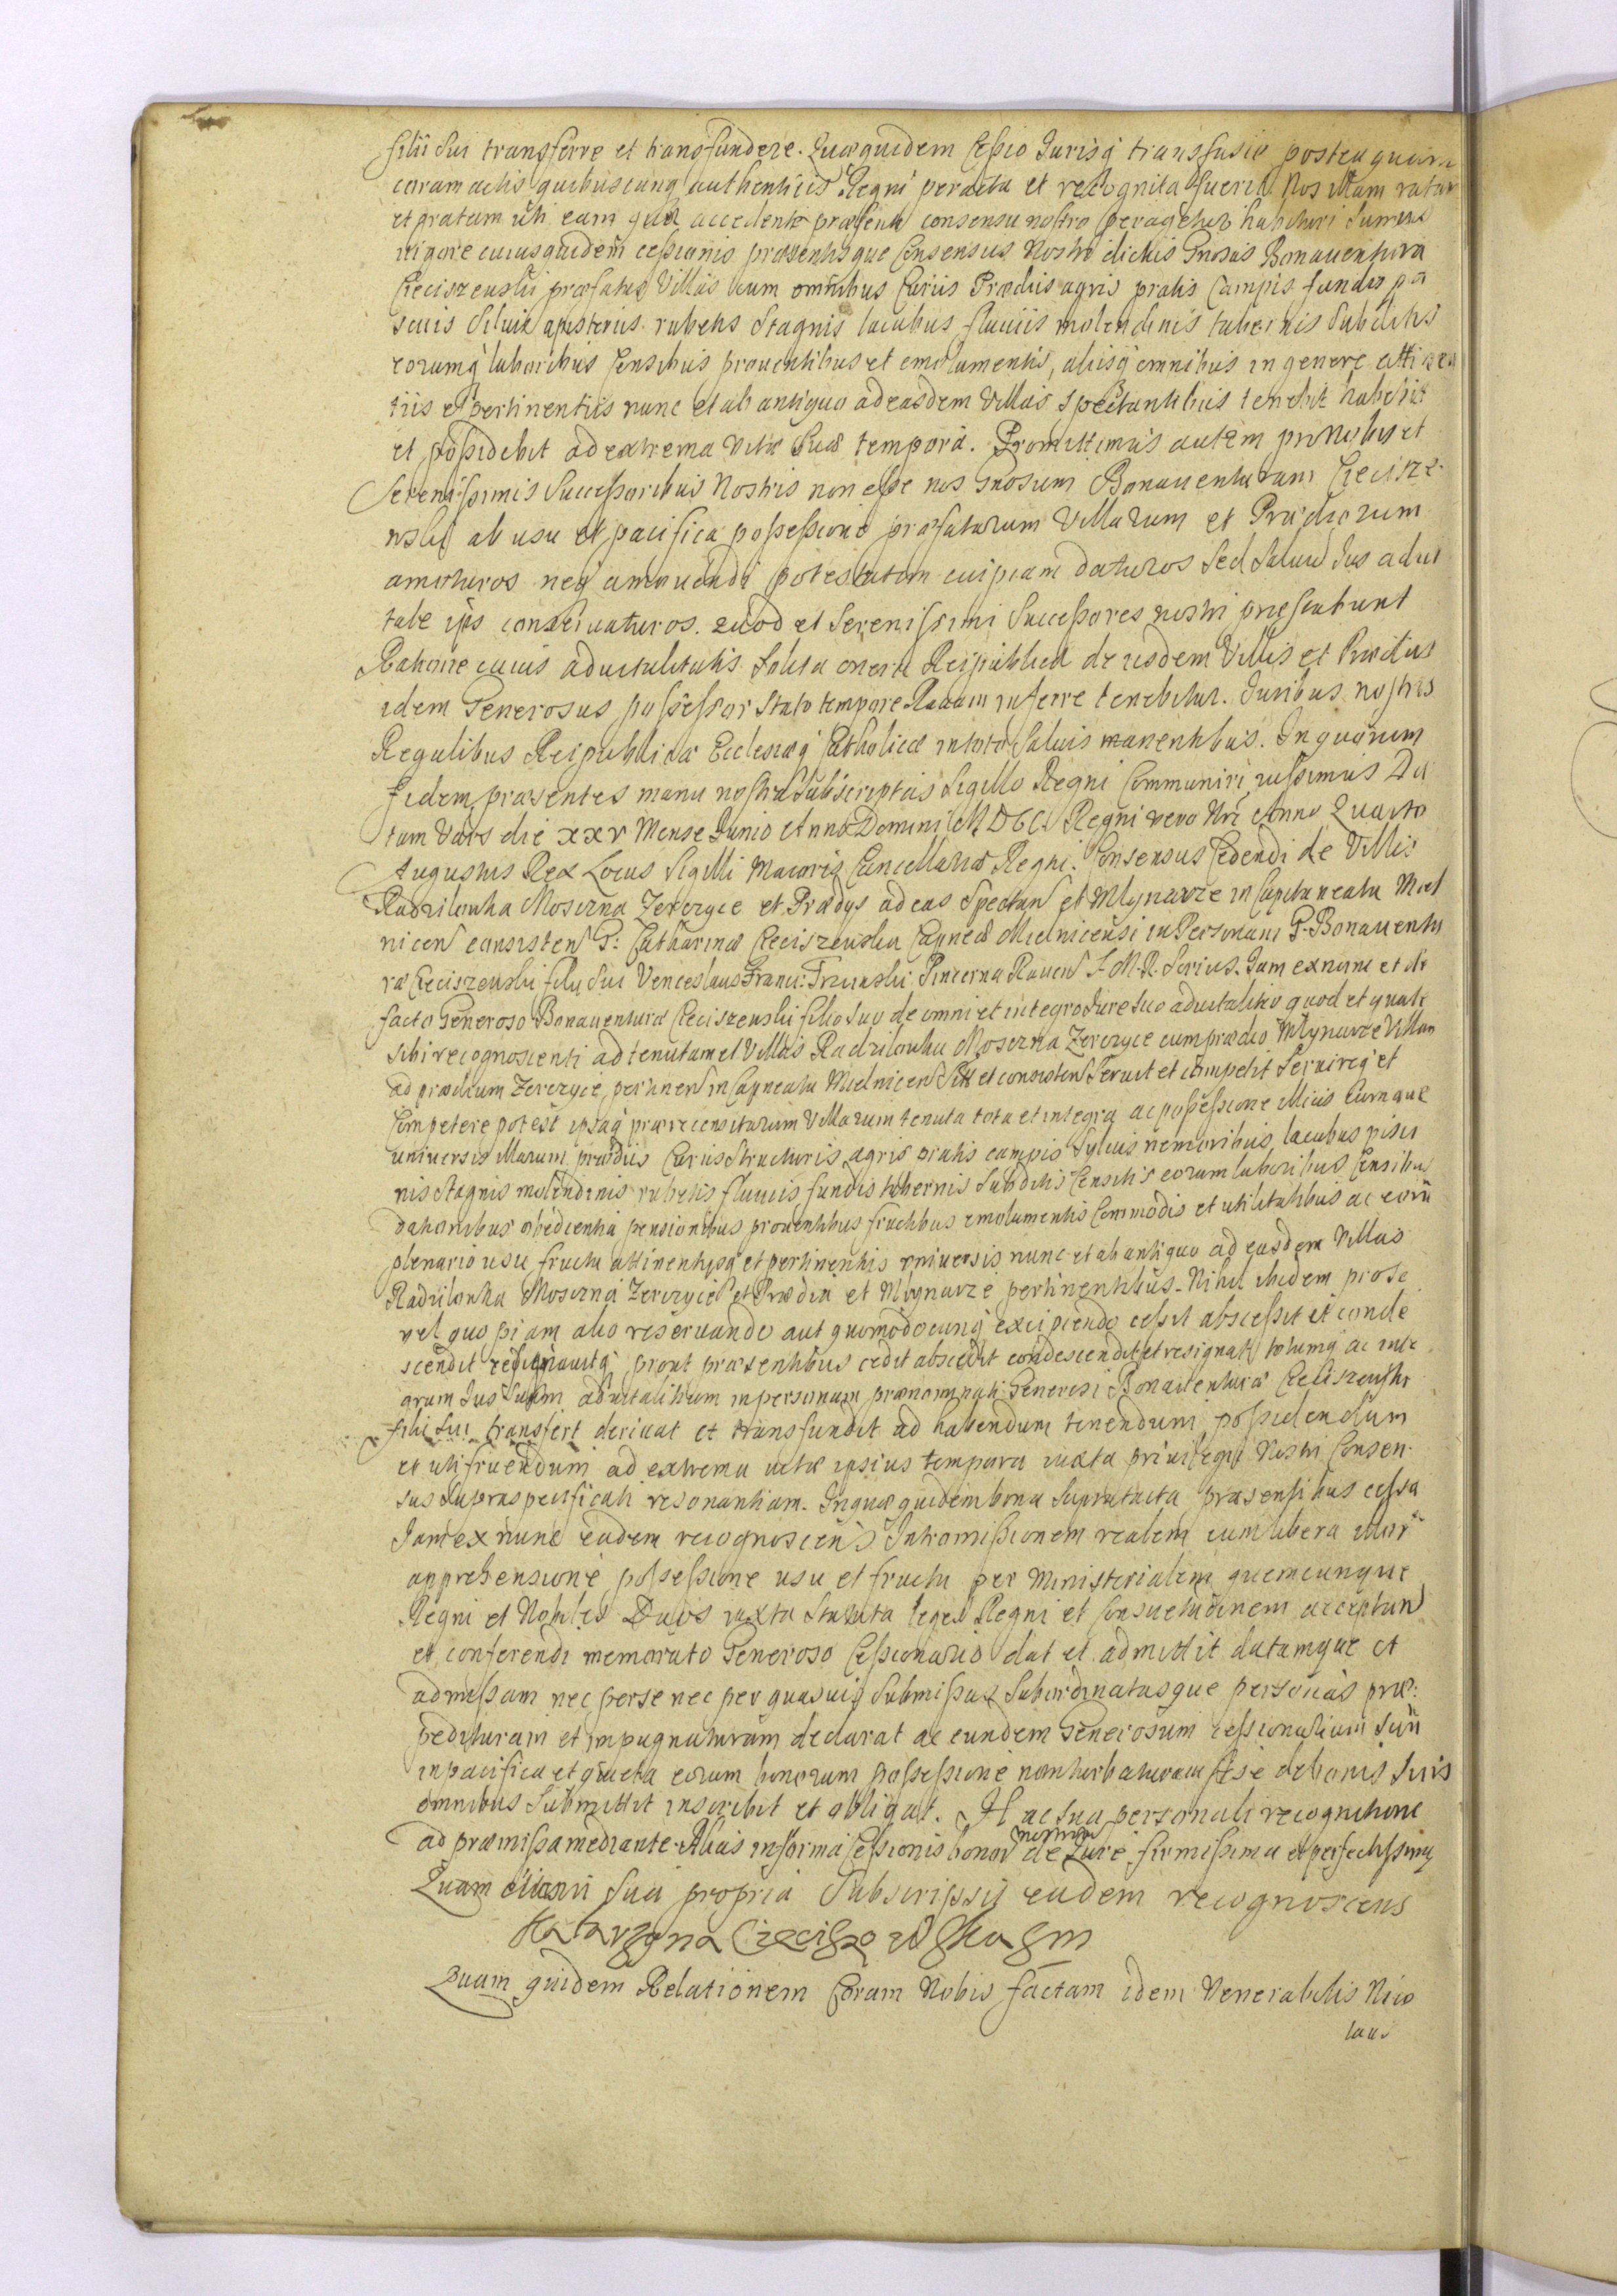 filii Sui transferre et transfundere. Quæquidem Cessio Jurisq́ transfusio posteaquam
coram actis quibuscunq authenticis Regni peracta et recognita fuerit Nos illam ratam
et gratam uti eam quæ accedente præsenti consensu nostro peragetur habituri sumus
vigore cuiusquidem cessionis præsentisque Consensus Nostri dictus Gnosus Bonaventura
Cieciszewski præfatas Villas cum omnibus Curiis Prædiis agris pratis Campis fundis pa
scuis Silvis rubetis Stagnis lacubus fluviis molendinis tabernis Subditis
eorumq́ laboribus Censibus proventibus et emolumentis, aliisq́ omnibus in genere attinen
tiis et pertinentiis nunc et ab antiquo ad easdem Villas spectantibus tenebit habebit
et possidebit ad extrema vitæ suæ tempora. Promittimus autem pro Nobis et
Serenissimis Successoribus Nostris non esse nos Gnosum Bonaventuram Ciecisze
wski ab usu et pacifica possessione præfatarum Villarum et Prædiorum
amoturos neq́ amovendi potestatem cuipiam daturos Sed Salvum Jus advi
tale ipsi conservaturos. Quod et Serenissimi Successores nostri præstabunt
Ratione cuius advitalitatis Solita onera Reipublicæ de iisdem Villis et Prædiis
idem Generosus possessor Stato tempore Ravam inferre tenebitur. Juribus nostris
Regalibus Reipublicæ Ecclesiæq́ Catholicæ in toto Salvis manentibus. In quorum
fidem præsentes manu nostra Subscriptas Sigillo Regni Communiri iussimus Da
tum Vars die XXV Mense Junio Anno Domini Regni vero Nri Anno Quarto
Augustus Rex Locus Sigilli Maioris Cancellariæ Regni. Consensus Cedendi de Villis
Radzilowka Moszczna Zerczyce et Prædys ad eas Spectan et Mlynarze in Capitaneatu Miel
nicen consisten G: Catharinæ Cieciszewska Capneæ Mielnicensi in Personam G. Bonaventu
ræ Cieciszewski filii Sui Venceslaus Franc: Pincerna Raven S. M. R. Jam ex nunc et de
facto Generoso Bonaventuræ Cieciszewski filio Suo de omni et integro Jure Suo advitalitio quod et quale
sibi recognoscenti ad tenutam et Villas Radzilowka Moszczna Zerczyce cum prædio Mlynarze Villam
ad prædium Zerczyce pertinen in Capneatu Mielnicen Sitt et consisten Servit et competit Servireq́ et
Competere potest ipsaq́ prærecensitarum Villarum tenuta tota et integra ac possessione illius Cumque
universis illarum prædiis Curiis Structuris agris pratis campis Sylvis nemoribus lacubus pisci
nis Stagnis molendinis rubetis fluviis fundis tabernis Subditis Censitis eorum laboribus Censibus
dationibus obedientia pensionibus proventibus fructibus emolumentis Commodis et utilitatibus ac eorū
plenario usu fructu attinentysq́ et pertinentiis universis nunc et ab antiquo ad easdem Villas
Radzilowka Moszczna Zerczyce et Prædia et Mlynarze pertinentibus. Nihil ibidem pro se
vel quopiam alio reservando aut quomodocunq́ excipiendo cessit abscessit et conde
scendit resignavitq́ prout præsentibus cedit abscedit condescendit et resignat totumq́ ac inte
grum Jus Suum advitalitium in personam prænominati Generosi Bonaventuræ Cieciszewski
filii Sui transfert derivat et transfundit ad habendum tenendum possidendum
et utifruendum ad extrema vitæ ipsius tempora iuxta privilegii Nostri Consen
sus Supraspecificati resonantiam. Inquæ quidem bona Supratacta præsentibus cessa
Jam ex nunc eadem recognoscens Intromissionem realem cum libera illor
apprehensione possessione usu et fructu per Ministerialem quemcunque
Regni et Nobiles Duos iuxta Statuta leges Regni et Consuetudinem acceptan
et conferendi memorato Generoso Cessionario dat et admittit datamque et
admissam nec per se nec per quasvis Submissas Subordinatasque personas præ:
pedituram et impugnaturam declarat ac eundem Generosum cessionarium suū
in pacifica et quieta eorum bonorum possessione non turbaturam Se de bonis suis
omnibus Submittit inscribit et obligat. Hac Sua personali recognitione
ad præmissa mediante. Alias in forma Cessionis bonor de Jure firmissima et perfectissima
Quam Sua propria Subscripsit eadem recognoscens
Katarzyna Cieciszewska
Quam quidem Relationem Coram Nobis factam idem Venerabilis Nico
laus